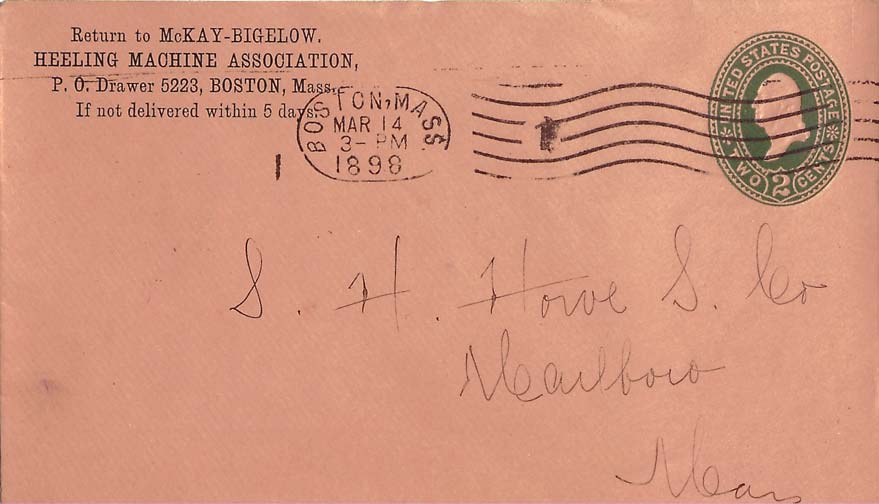 Return to McKAY-BIGELOW.
HEELING MACHINE ASSOCIATION,
P. O. Drawer 5223, BOSTON, Mass.,
If not delivered within 5 days.
BOSTON, MASS
MAR 14
3-PM
1898
1
UNITED STATES POSTAGE
TWO 2 CENTS
S. H. Howe S. Co
Marlboro
Mass